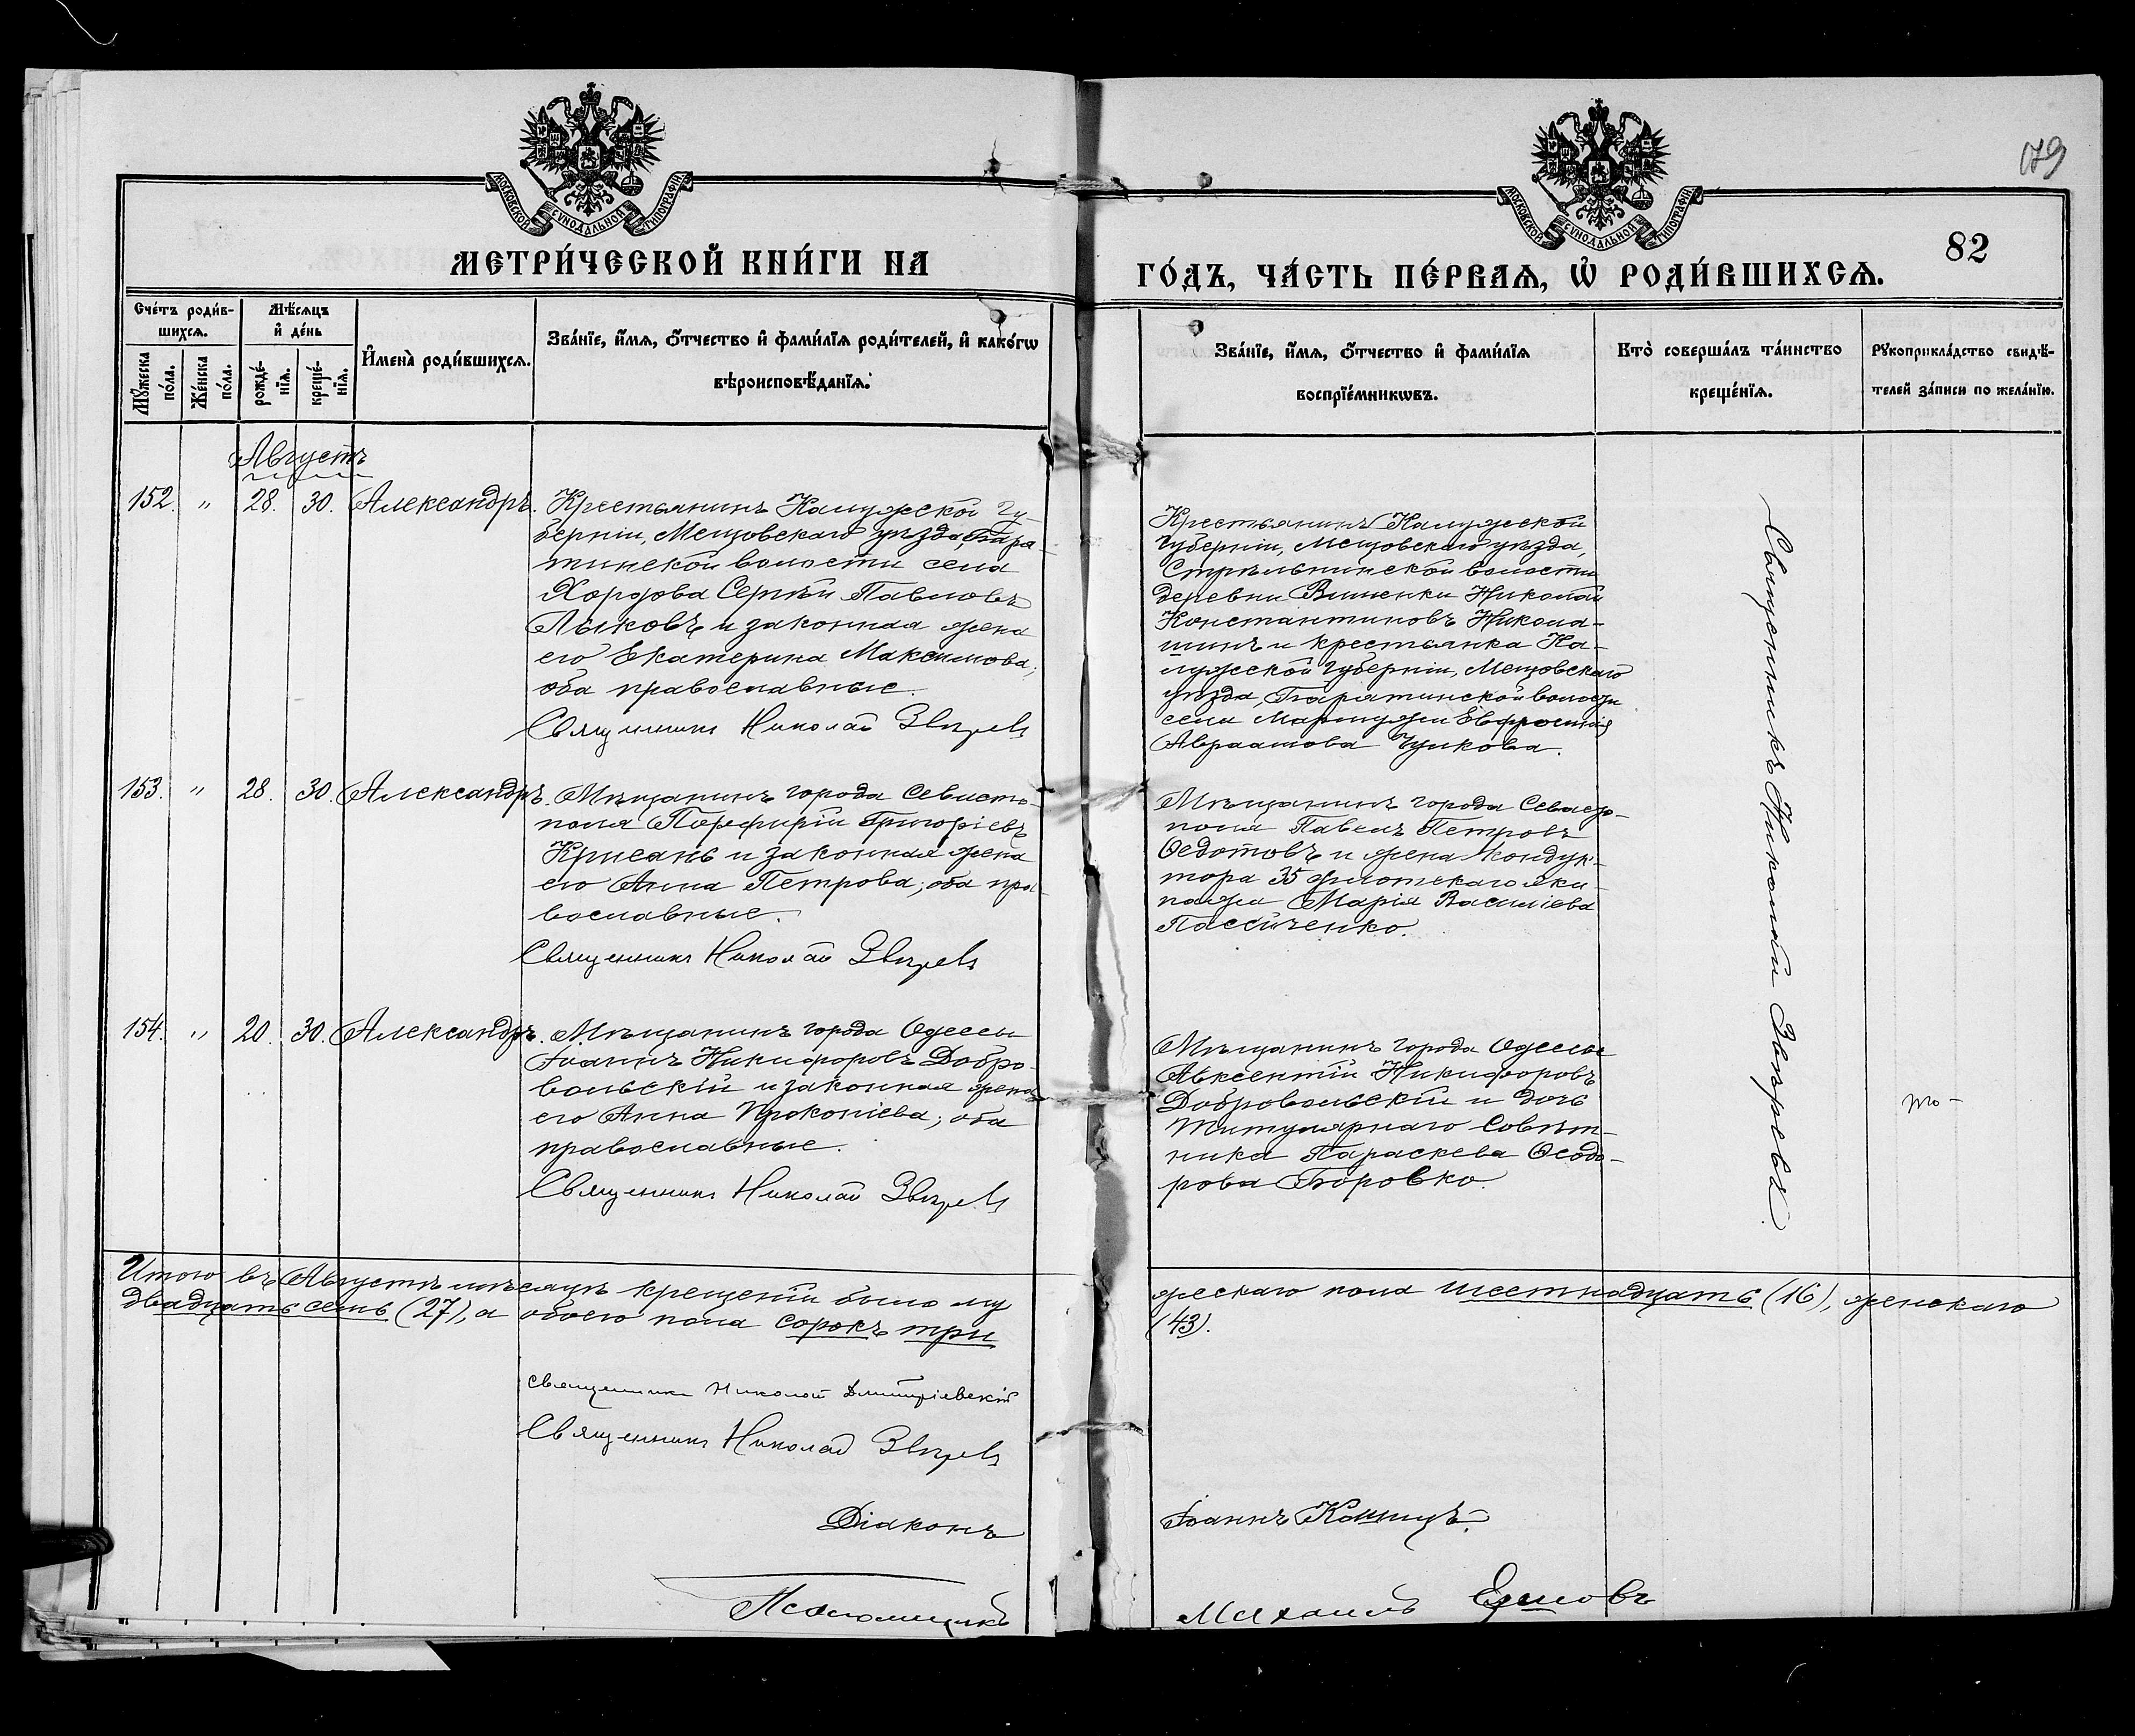 МОСКОВСКОЙ СѴНОДАЛЬНОЙ ТИПОГРАФІИ
МЕТРИ́ЧЕСКОЙ КНИ́ГИ НА
Сче́тъ роди́в-
шихсѧ.
Мѣ́сѧцъ
и҆ де́нь
Мꙋ́жеска
по́ла.
Же́нска
по́ла.
рожде́-
нїѧ.
креще́-
нїѧ.
И҆мена̀ роди́вшихсѧ.
Зва́нїе, и҆́мѧ, ѻ҆́тчество и҆ фами́лїѧ роди́телей, и҆ како́гѡ
вѣроисповѣ́данїѧ.
Августъ
152. " 28. 30. Александръ.
Крестьянинъ Калужской Гу-
берніи, Мещовскаго уѣзда, Баря-
тинской волости села
Хорзова Сергѣй Павловъ
Лыковъ и законная жена
его Екатерина Максимова;
оба православные.
Священникъ Николай Звѣревъ
153. " 28. 30. Александръ.
Мѣщанинъ города Севасто-
поля Порфирій Григоріевъ
Крисань и законная жена
его Анна Петрова; оба пра-
вославные.
Священникъ Николай Звѣревъ
154. " 20. 30. Александръ.
Мѣщанинъ города Одессы
Іоаннъ Никифоровъ Добро-
вольскій и законная жена
его Анна Прокопіева; оба
православные.
Священникъ Николай Звѣревъ
Итого въ Августѣ мѣсяцѣ крещеній было му
двадцать семь (27), а обоего пола сорокъ три
Священникъ Николай Димитріевскій
Священникъ Николай Звѣревъ
Діаконъ
Псаломщикъ
79
МОСКОВСКОЙ СѴНОДАЛЬНОЙ ТИПОГРАФІИ
82
ГО́ДЪ, ЧА́СТЬ ПЕ́РВАѦ, Ѡ҆ РОДИ́ВШИХСѦ.
Зва́нїе, и҆́мѧ, ѻ҆́тчество и҆ фами́лїѧ
воспрїе́мникѡвъ.
Кто̀ соверша́лъ та́инство
креще́нїѧ.
Рꙋкоприкла́дство свидѣ́-
телей за́писи по жела́нїю.
Крестьянинъ Калужской
Губерніи, Мещовскаго уѣзда,
Стрѣльнинской волости
деревни Вишенки Николай
Константиновъ Никола-
шинъ и крестьянка Ка-
лужской Губерніи, Мещовскаго
уѣзда, Барятинской волости
села Мармужи Евфросинія
Авраамова Чулкова.
Мѣщанинъ города Севасто-
поля Павелъ Петровъ
Ѳедотовъ и жена Кондук-
тора 35 флотскаго эки-
пажа Марія Василіева
Пасѣченко.
Мѣщанинъ города Одессы
Авксентій Никифоровъ
Добровольскій и дочь
Титулярнаго Совѣт-
ника Параскева Ѳеодо-
рова Боровко.
Священникъ Николай Звѣревъ.
жескаго пола шестнадцать (16), женскаго
(43).
Іоаннъ
Михаилъ